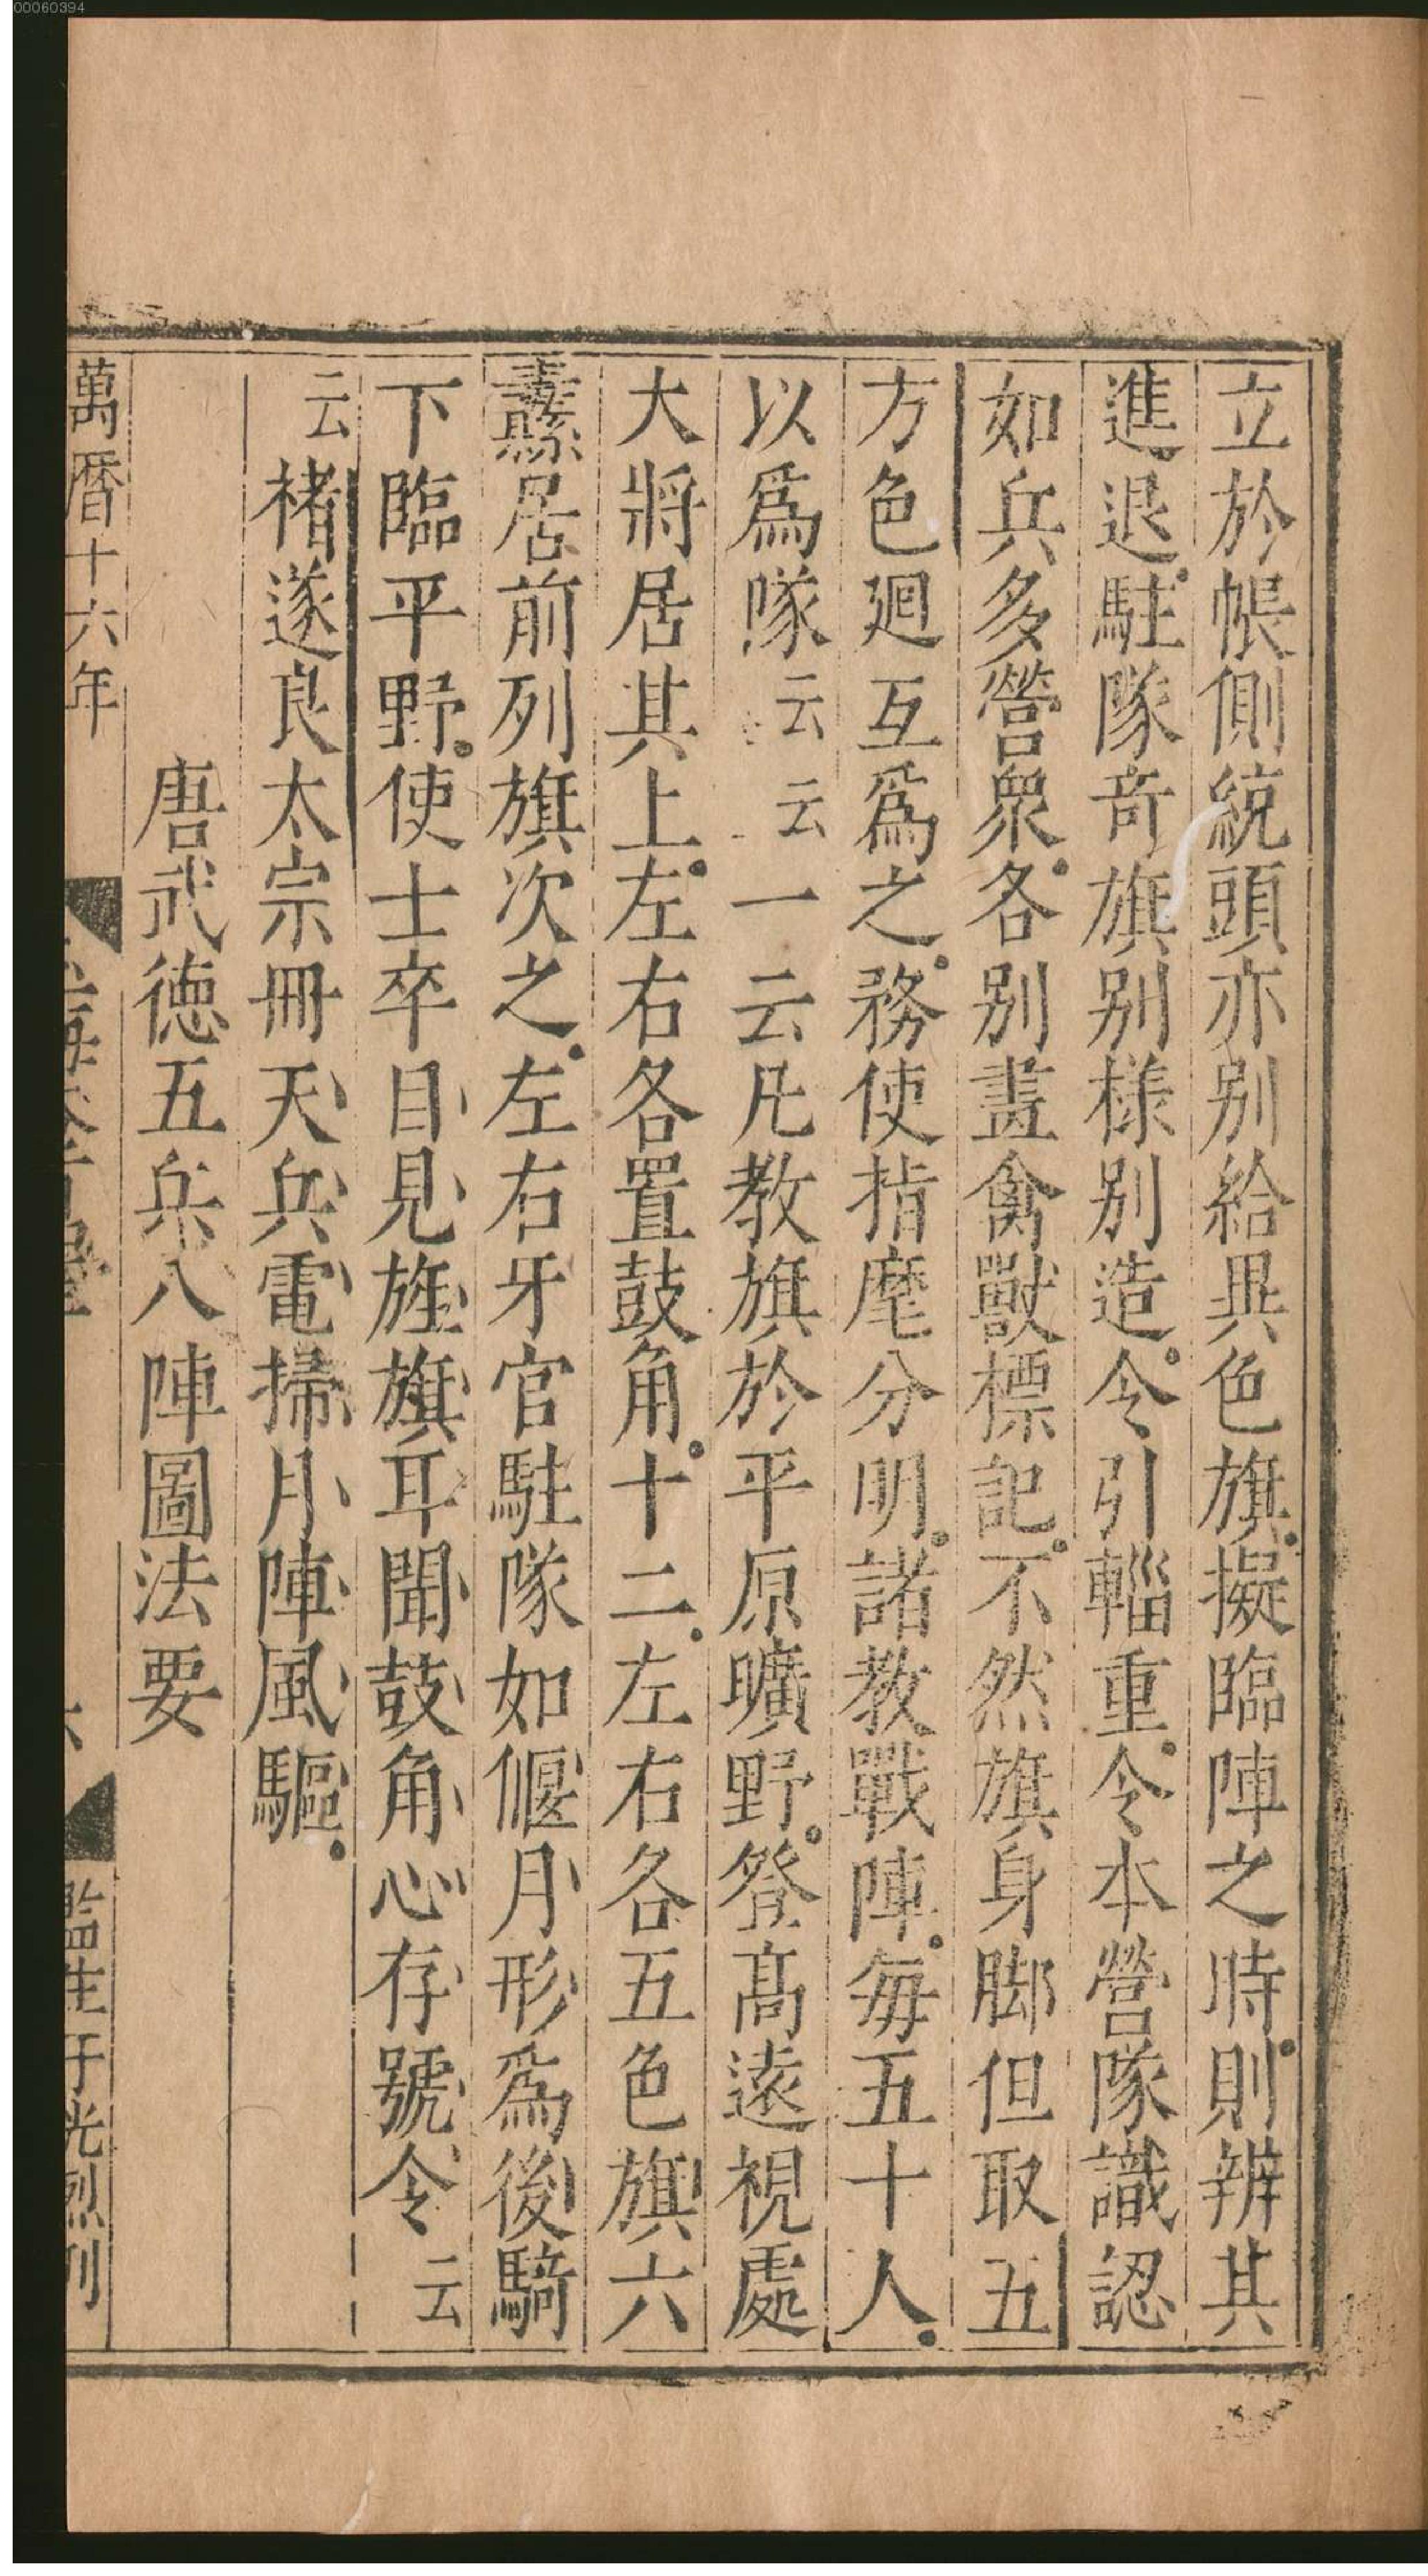 立於帳側統頭亦别給異色旗擬臨陣之時則辨其
進退駐隊竒旗别様别造令引輜重令本營隊識認
如兵多營衆各别畫禽獸標記不然旗身脚但取五
方色廻互爲之務使指麾分明諸教戰陣毎五十人
以爲隊云云一云凡教旗於平原曠野登髙遠視處
大將居其上左右各置鼓角十二左右各五色旗六
纛居前列旗次之左右牙官駐隊如偃月形爲後騎
下臨平野使士卒目見旌旗耳聞鼓角心存號令云
云褚遂良太宗冊天兵電掃月陣風驅
唐武徳五兵八陣圖法要
萬曆十六年
監生于光烈刊
00060394